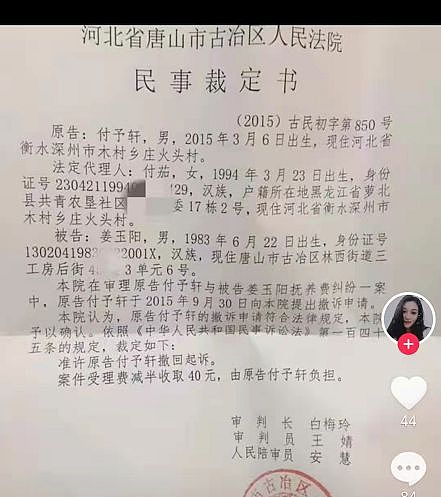 河北省唐山市古冶区人民法院
民事裁定书
(2015)古民初字第850号
原告：付予轩，男，2015年3月6日出生，现住河北省
衡水深州市木村乡庄火头村。
法定代理人：付茹，女，1994年3月23日出生，身份
证号23042119940 429，汉族，户籍所在地黑龙江省萝北
县共青农垦社区 委17栋2号，现住河北省衡水深州市
木村乡庄火头村。
被告：姜玉阳，男，1983年6月22日出生，身份证号
130204198 2001X，汉族，现住唐山市古冶区林西街道三
工房后街4 3单元6号。
本院在审理原告付予轩与被告姜玉阳抚养费纠纷一案
中，原告付予轩于2015年9月30日向本院提出撤诉申请。
本院认为，原告付予轩的撤诉申请符合法律规定，本院
予以确认。依照《中华人民共和国民事诉讼法》第一百四十
五条的规定，裁定如下：
准许原告付予轩撤回起诉。
案件受理费减半收取40元，由原告付予轩负担。
审判长 白梅玲
审判员 王婧
人民陪审员 安慧
古冶区
44
84